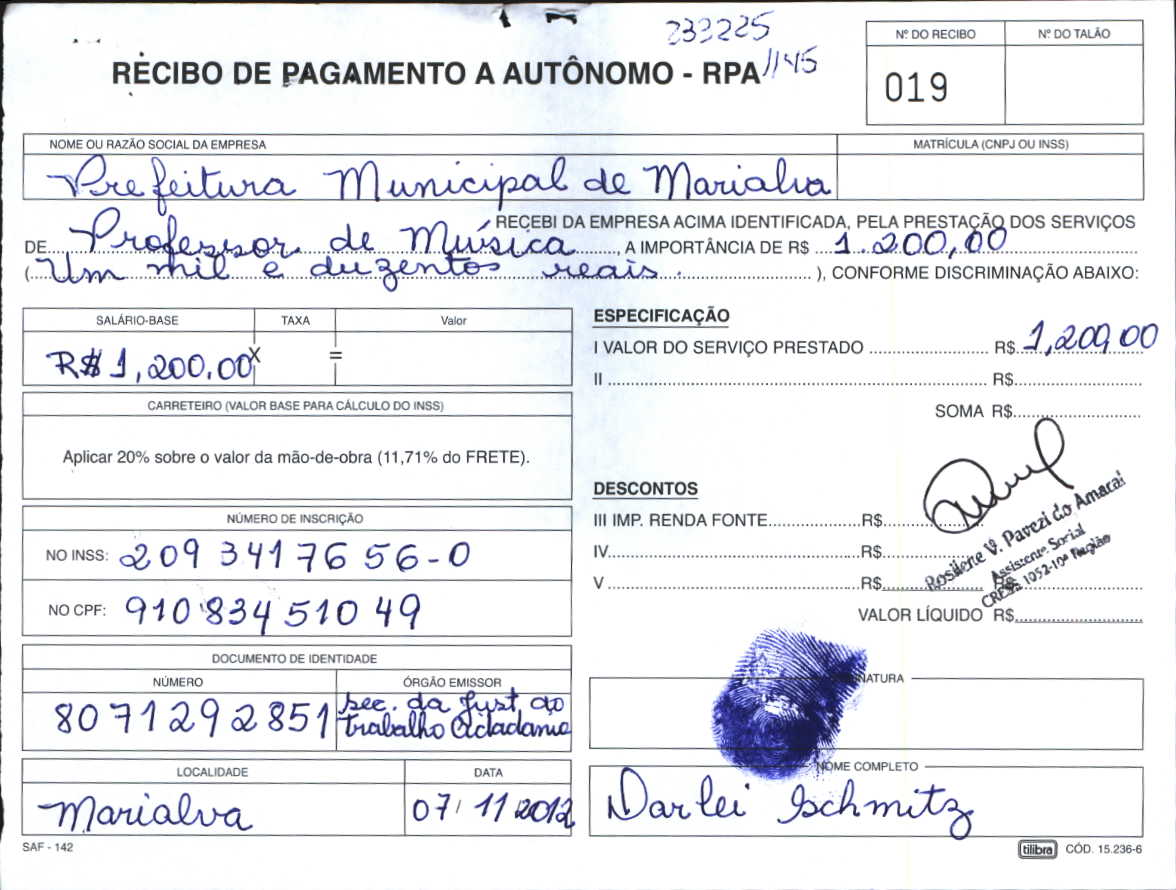 233225
1145
RECIBO DE PAGAMENTO A AUTÔNOMO - RPA
Nº DO RECIBO Nº DO TALÃO
019
NOME OU RAZÃO SOCIAL DA EMPRESA MATRÍCULA (CNPJ OU INSS)
Prefeitura Municipal de Marialva
RECEBI DA EMPRESA ACIMA IDENTIFICADA, PELA PRESTAÇÃO DOS SERVIÇOS
DE Professor de Música, A IMPORTÂNCIA DE R$ 1.200,00
(Um mil e duzentos reais.), CONFORME DISCRIMINAÇÃO ABAIXO:
SALÁRIO-BASE TAXA Valor
R$ 1,200.00 X =
CARRETEIRO (VALOR BASE PARA CÁLCULO DO INSS)
Aplicar 20% sobre o valor da mão-de-obra (11,71% do FRETE).
NÚMERO DE INSCRIÇÃO
NO INSS: 209 3417656-0
NO CPF: 910 834 510 49
DOCUMENTO DE IDENTIDADE
NÚMERO ÓRGÃO EMISSOR
8071292851 sec. da Just. do
trabalho Cidadania
LOCALIDADE DATA
Marialva 07/11/2012
SAF - 142
ESPECIFICAÇÃO
I VALOR DO SERVIÇO PRESTADO R$ 1,200,00
II R$
SOMA R$
DESCONTOS
III IMP. RENDA FONTE R$
IV R$
V R$ R$
VALOR LÍQUIDO R$
Rosilene V. Pavezi do Amaral
Assistente Social
CRESS 1052-10ª Região
NATURA
NOME COMPLETO
Darlei Schmitz
tilibra CÓD. 15.236-6